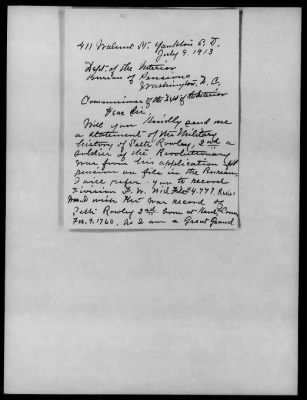 411 Walnut St. Yankton S. D.
July 9. 1913
Dept. of the Interior
Bureau of Pensions
Washington, D. C.
Commissioner of the Dept of the Interior
Dear Sir
Will you Kindly send me
a statement of the Military
history of Seth Rowley, 2nd a
soldier of the Revolutionary
War from his application for
pension on file in the Bureau.
I will refer you to record
Division
with
War record of
Seth Rowley 2nd born at Kent, Conn
Feb. 9. 1760. As I am a Great Grand